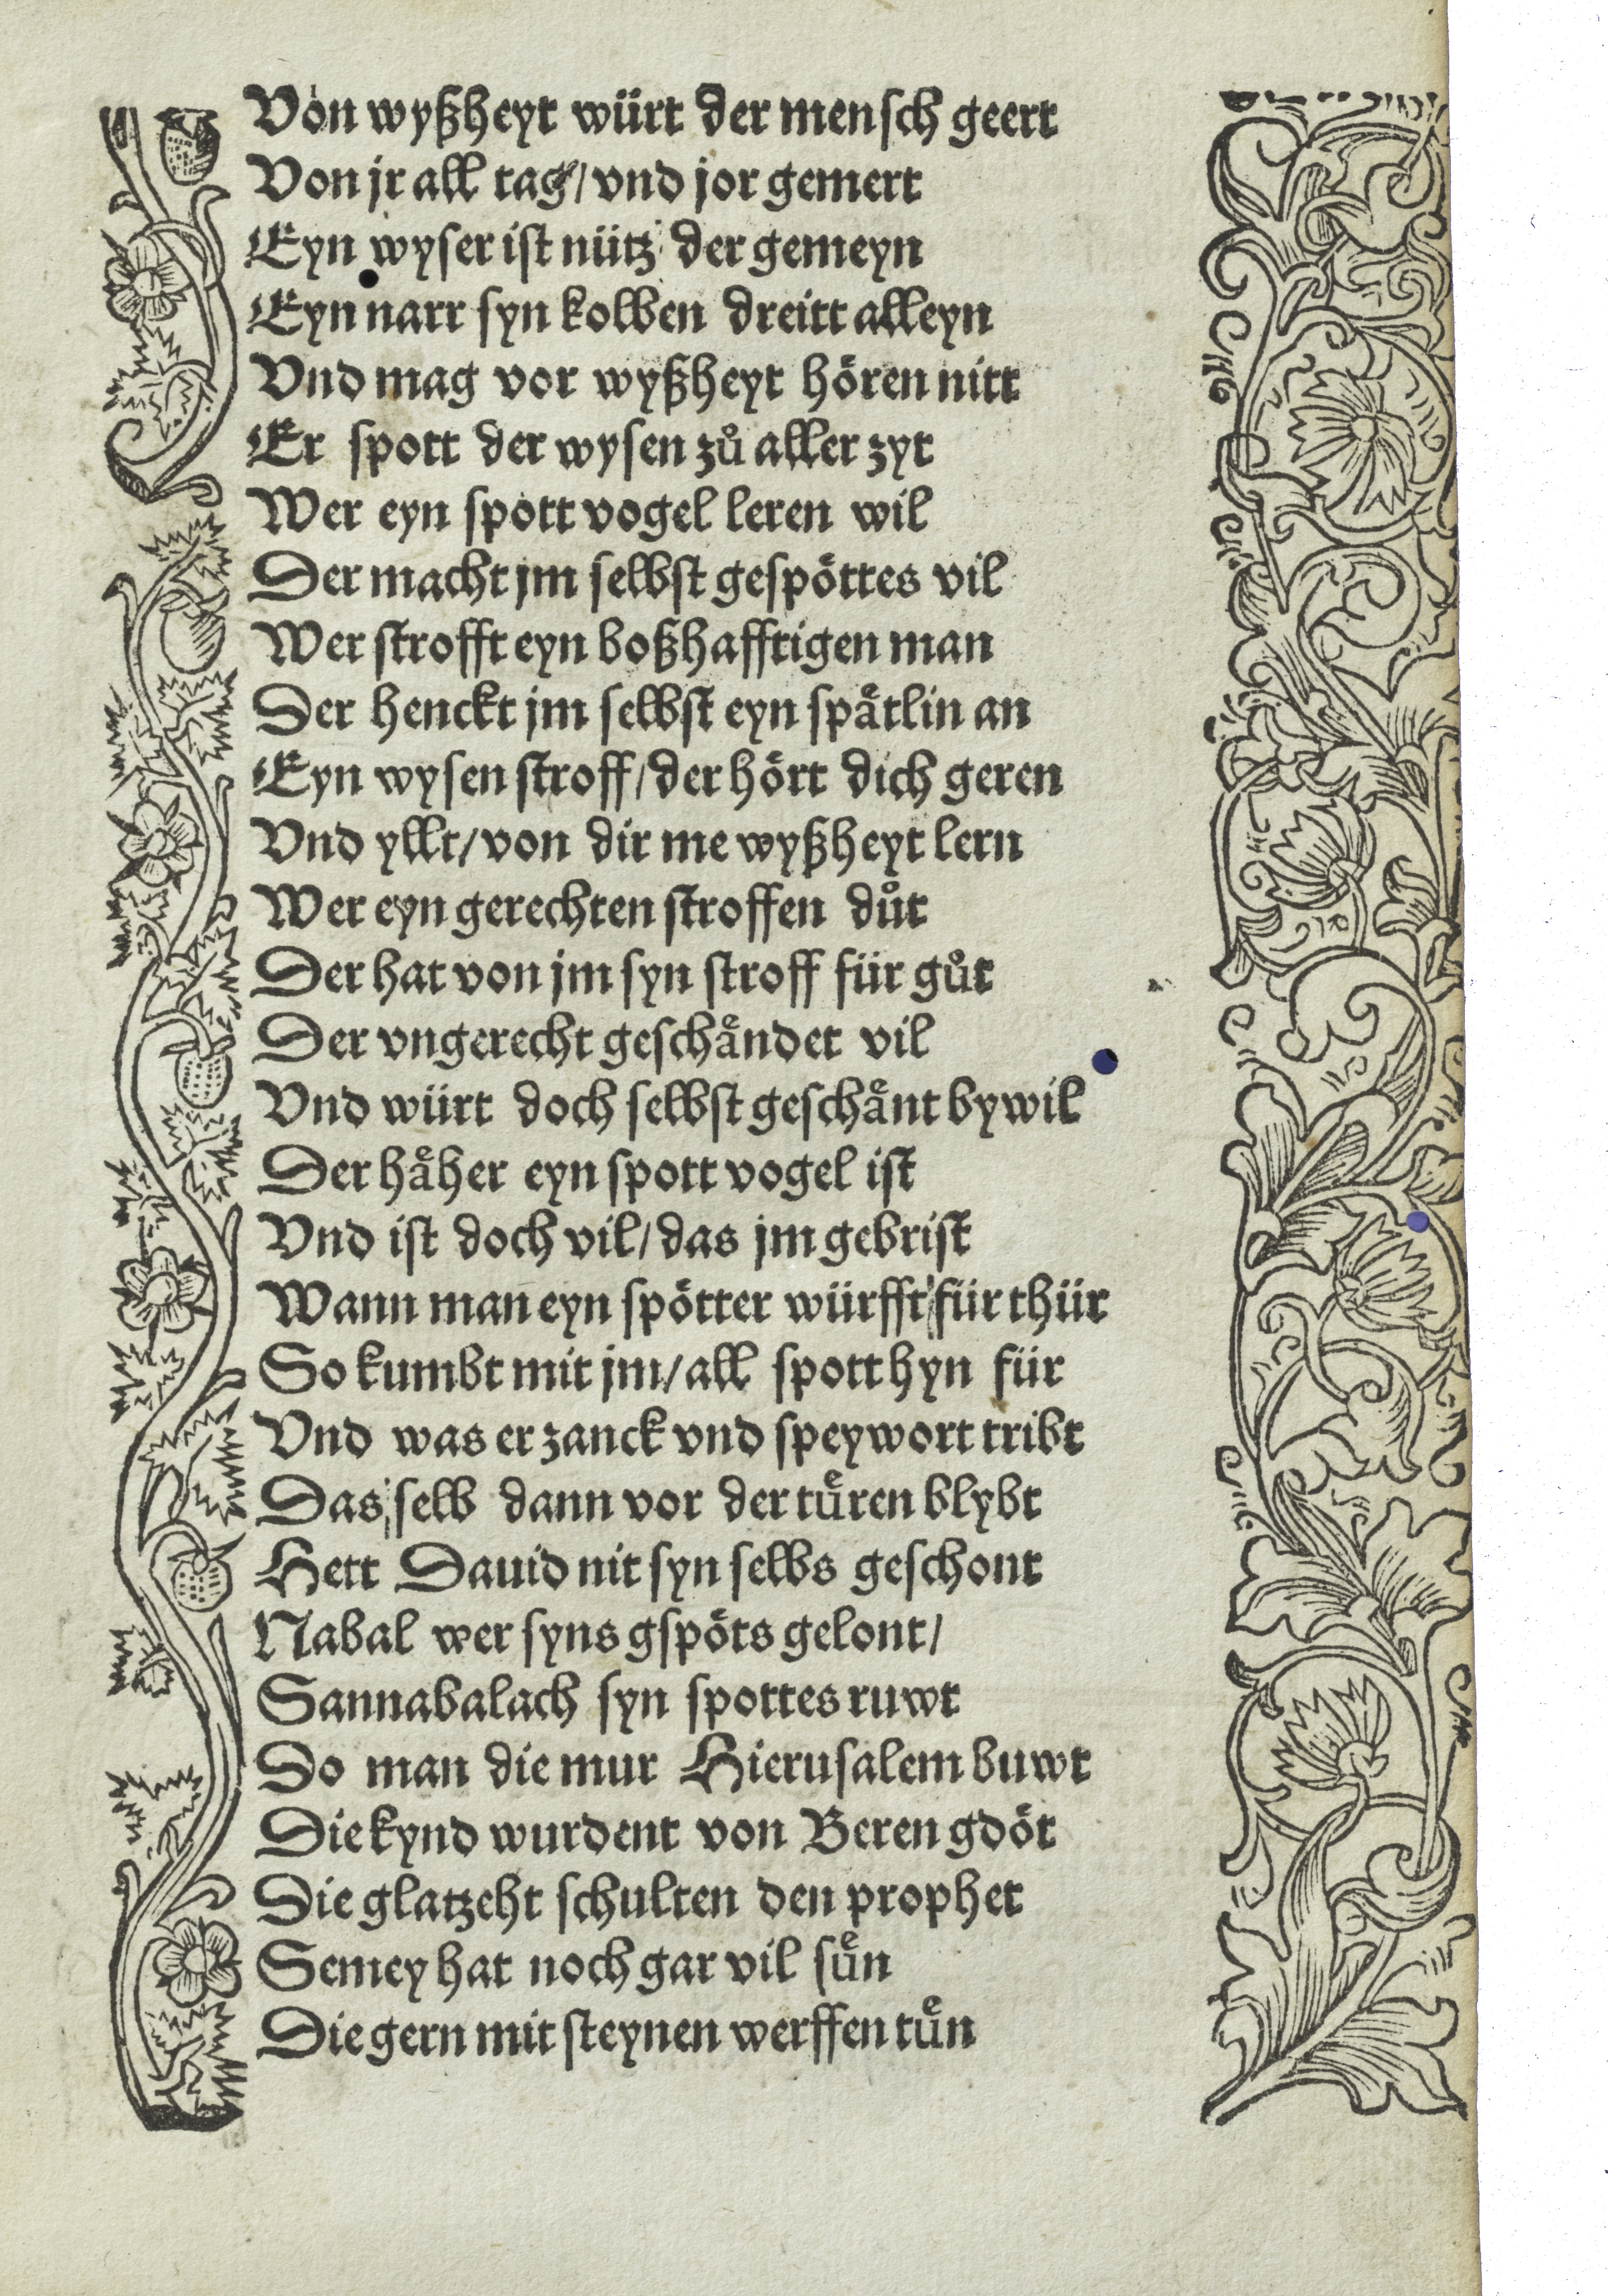 Von wyßheyt würt der mensch geert
Von jr all tag/ vnd jor gemert
Eyn wyser ist nütz der gemeyn
Eyn narr syn kolben dreitt alleyn
Vnd mag vor wyßheyt hören nitt
Er spott der wysen zů aller zyt
Wer eyn spott vogel leren wil
Der macht jm selbst gespöttes vil
Wer strofft eyn boßhafftigen man
Der henckt jm selbst eyn spaͤtlin an
Eyn wysen stroff/ der hört dich geren
Vnd yllt/ von dir me wyßheyt lern
Wer eyn gerechten stroffen důt
Der hat von jm syn stroff für gůt
Der vngerecht geschaͤndet vil
Vnd würt doch selbst geschaͤnt bywil
Der haͤher eyn spott vogel ist
Vnd ist doch vil/ das jm gebrist
Wann man eyn spötter würfft für thür
So kumbt mit jm/ all spott hyn für
Vnd was er zanck vnd speywort tribt
Das selb dann vor der tuͤren blybt
Hett Dauid nit syn selbs geschont
Nabal wer syns gspöts gelont/
Sannabalach syn spottes ruwt
Do man die mur Hierusalem buwt
Die kynd wurdent von Beren gdöt
Die glatzeht schulten den prophet
Semey hat noch gar vil suͤn
Die gern mit steynen werffen tuͤn